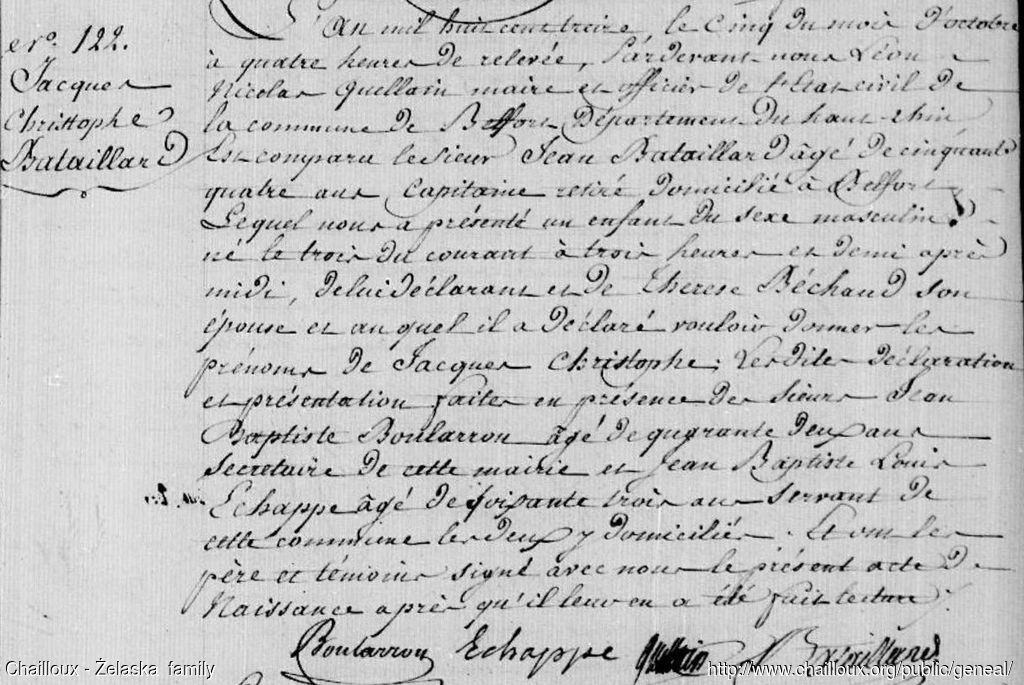 N.º 122.
Jacques
Christtophe
Bataillard
L'An mil huit cent treize le Cinq du mois D'octobre
à quatre heures de relevée, Pardevant nous Léon
Nicolas Quellain maire et officier de l'Etat civil de
la commune de Belfort Département du haut-rhin
Est comparu le sieur Jean Bataillard âgé de cinquante
quatre ans Capitaine retiré domicilié à Belfort
Lequel nous a présenté un enfant du sexe masculin
né le trois du courant à trois heures et demi après
midi, de lui déclarant et de Therese Béchaud son
épouse et auquel il a déclaré vouloir donner les
prénoms de Jacques Christophe; Lesdites déclaration
et présentation faites en présence des sieurs Jean
Baptiste Boularron âgé de quarante deux ans
secretaire de cette mairie et Jean Baptiste Louis
Echappe âgé de soixante trois ans servant de
cette commune les deux y domiciliés. Et ont les
père et témoins signé avec nous le présent acte de
Naissance après qu'il leur en a été fait lecture
Boularron Echappe Bataillard
Chailloux - Żelaska family
http://www.chailloux.org/public/geneal/